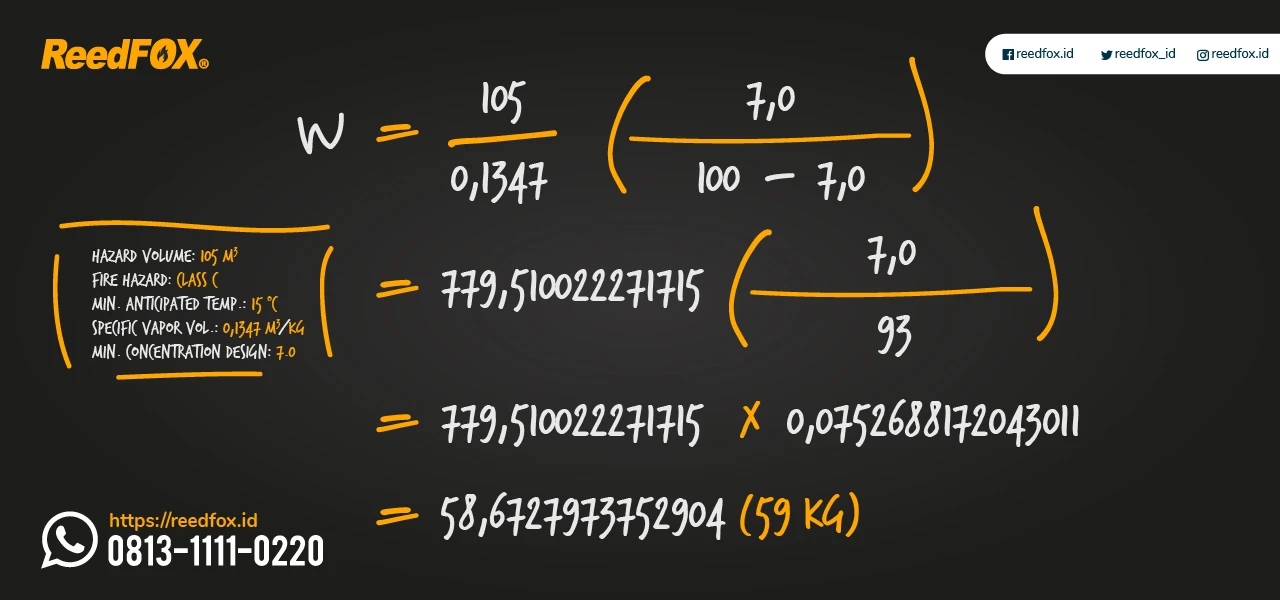 ReedFOX®
reedfox.id reedfox_id reedfox.id
W = 105 / 0,1347 ( 7,0 / 100 - 7,0 )
HAZARD VOLUME: 105 M³
FIRE HAZARD: CLASS C
MIN. ANTICIPATED TEMP.: 15 °C
SPECIFIC VAPOR VOL.: 0,1347 M³/KG
MIN. CONCENTRATION DESIGN: 7.0
= 779,510022271715 ( 7,0 / 93 )
= 779,510022271715 X 0,0752688172043011
= 58,6727973752904 (59 KG)
https://reedfox.id
0813-1111-0220